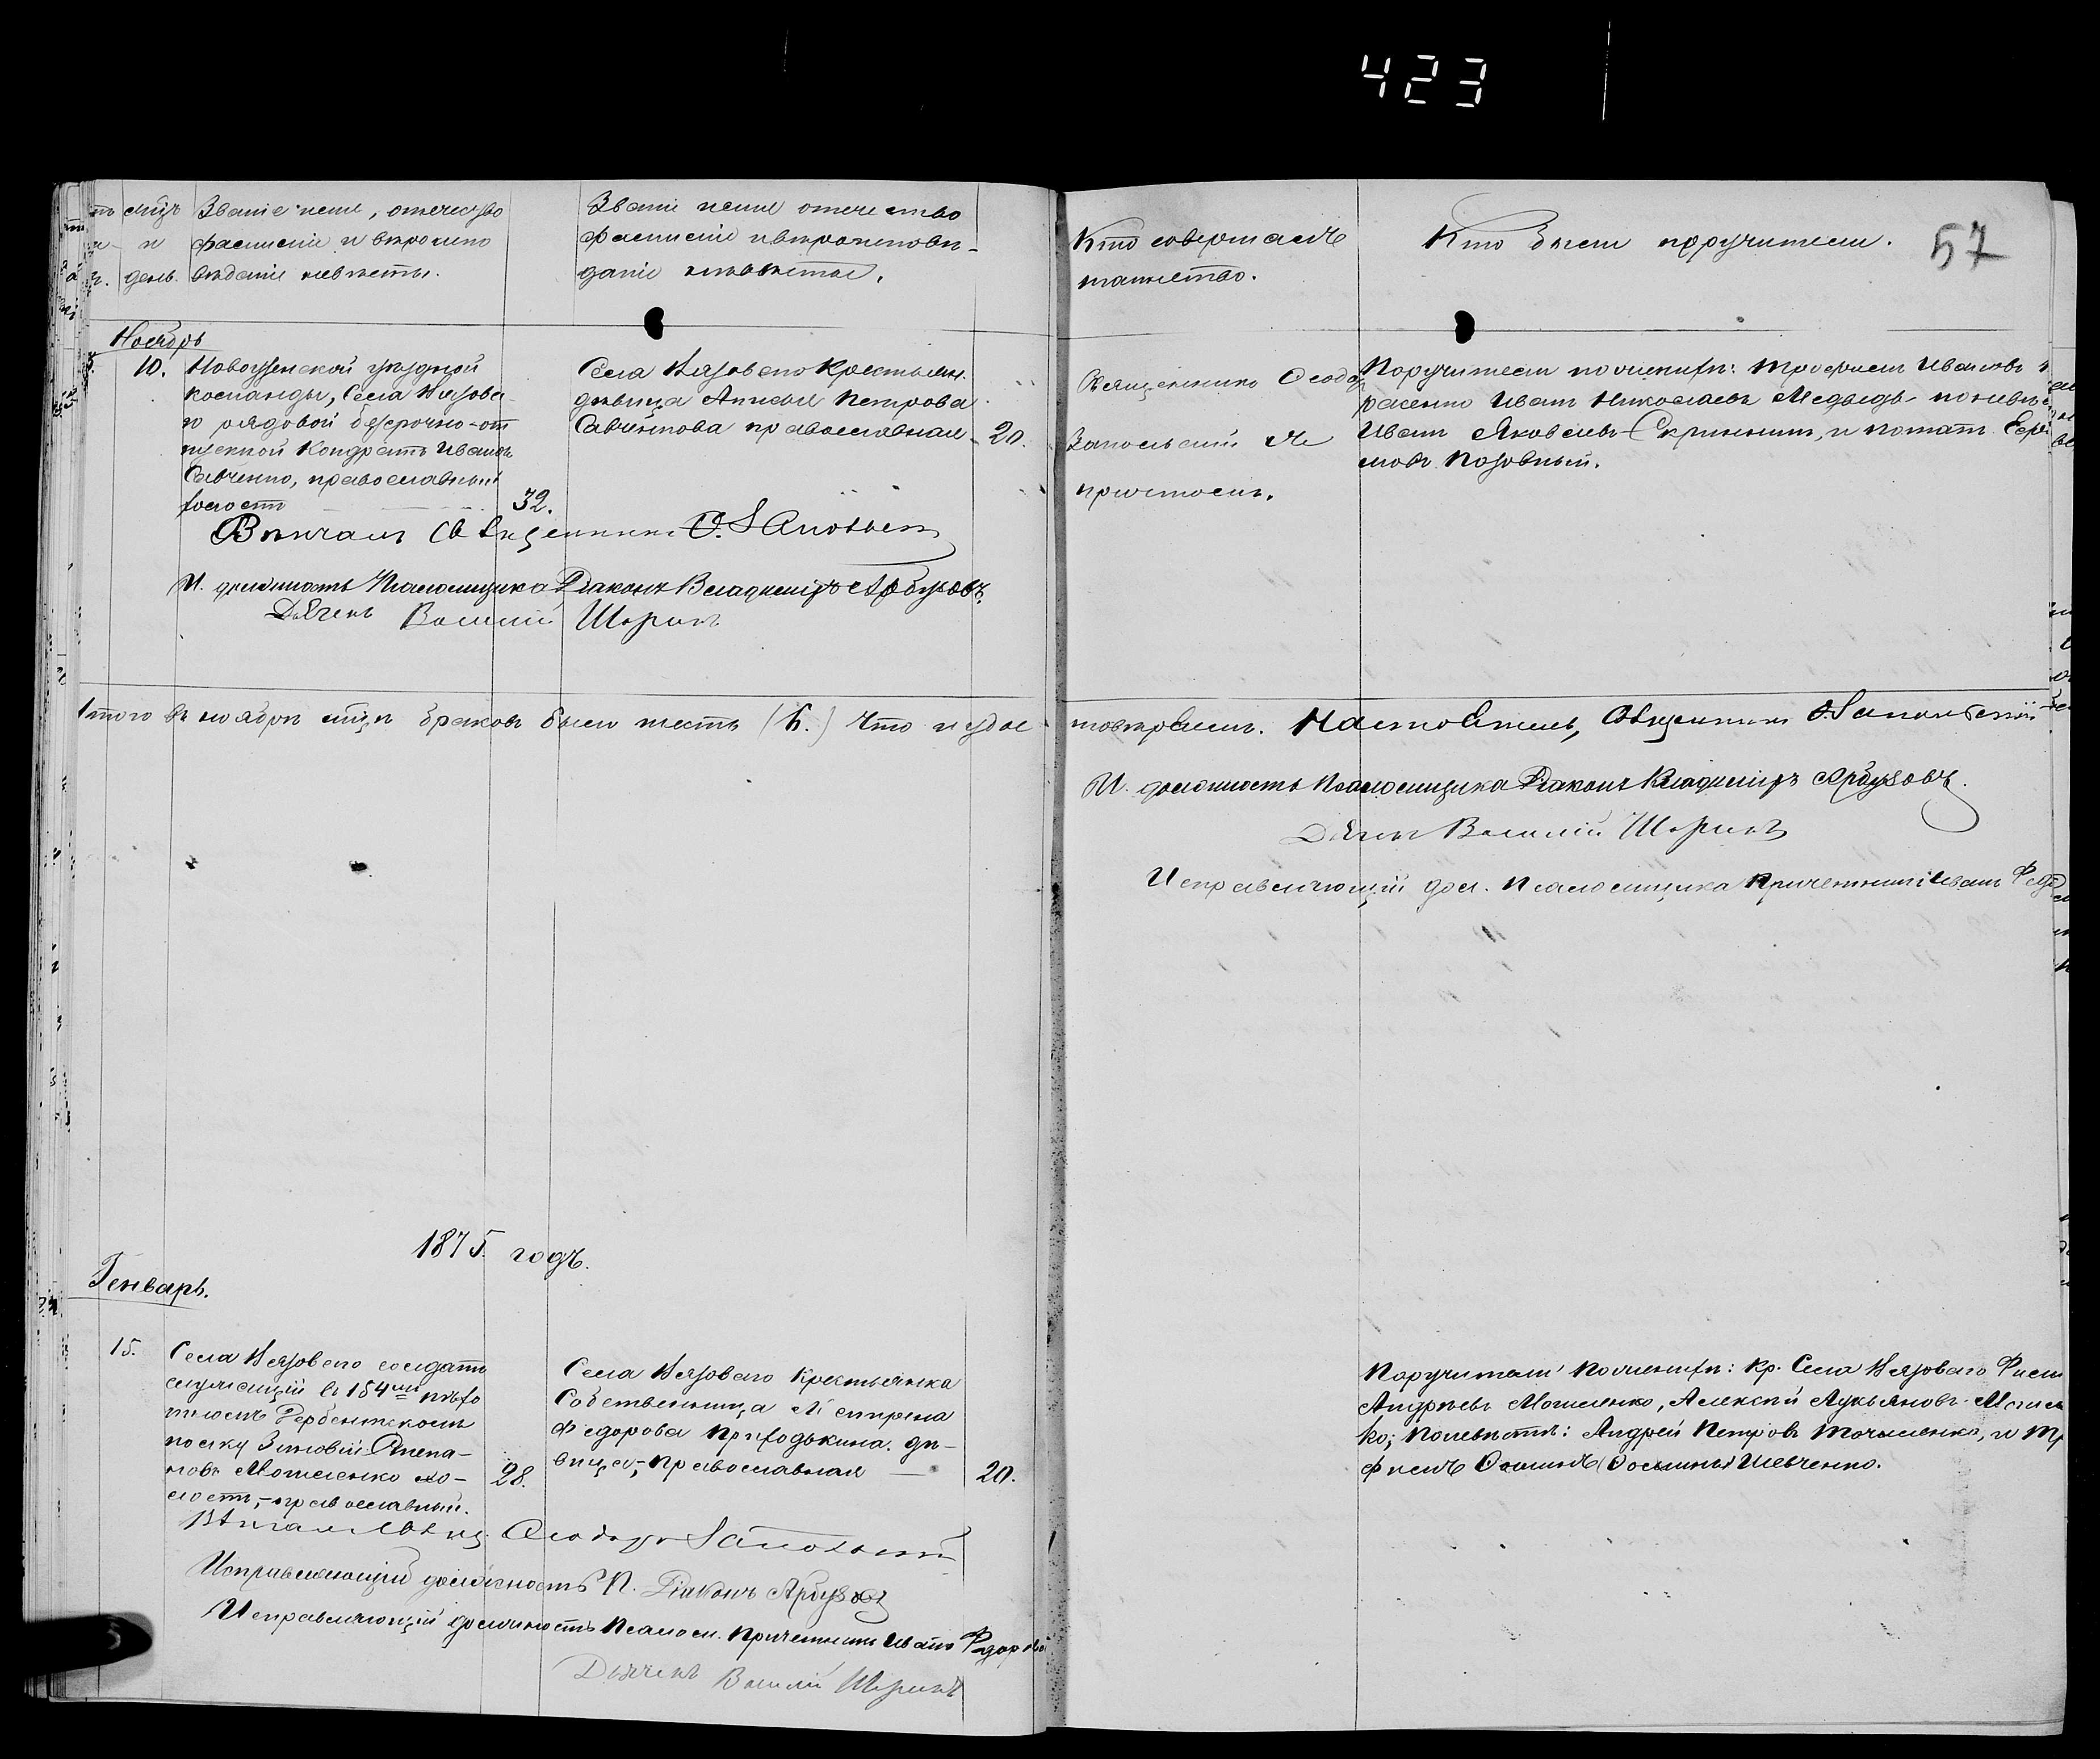 423
мцъ Званіе имя, отечество
и фамилія и вѣроиспо
день. вѣданіе невѣсты.
Званіе имя отечество
фамилія и вѣроисповѣ-
даніе невѣсты.
Кто совершалъ
таинство.
Кто были поручители.
57
Ноябрь
10. Новоузенской уѣздной
команды, Села Вязова-
го рядовой безсрочно-от
пускной Кондратъ Ивановъ
Савченко, православный
холостъ 32.
Села Вязоваго Крестьян.
дѣвица Петрова
Савченкова православная 20.
Священникъ Ѳеодоръ
Запольскій съ
причтомъ.
Поручители по женихѣ: Иванъ
Иванъ Николаевъ Медвѣдь по невѣстѣ
Иванъ Яковлевъ Скрынникъ, и
Позовный.
Вѣнчалъ Священникъ Ѳ. Запольскій
И. должность Псаломщика Діаконъ Владиміръ Арбузовъ.
Дьячекъ Василій Шоринъ
Итого въ ноябрѣ мцѣ браковъ было шесть (6.) Что и удос
товѣряемъ. Настоятель, Священникъ Ѳ. Запольскій
И. должность Псаломщика Діаконъ Владиміръ Арбузовъ.
Дьячекъ Василій Шоринъ
Исправляющій дол. Псаломщика Причетникъ Иванъ
1875. годъ.
Генварь.
15. Села Вязоваго солдатъ
служащій въ 154мъ пѣхо
тномъ Дербентскомъ
полку Зиновій Степа-
новъ Мошленко хо-
лостъ, - православный. 28.
Села Вязоваго Крестьянка
Собственница Матрена
Федорова Приходькина. дѣ-
вица, - православная 20.
Поручители по женихѣ: кр. Села Вязоваго
Андреевъ Мошленко, Алексѣй Лукьяновъ
ко; По невѣстѣ: Андрей Петровъ и
Шевченко.
Вѣнчалъ Свящ. Ѳеодоръ Запольскій
Исправляющій должность П. Діаконъ Арбузовъ
Исправляющій должность Псалом. Причетникъ Иванъ
Дьячекъ Василій Шоринъ